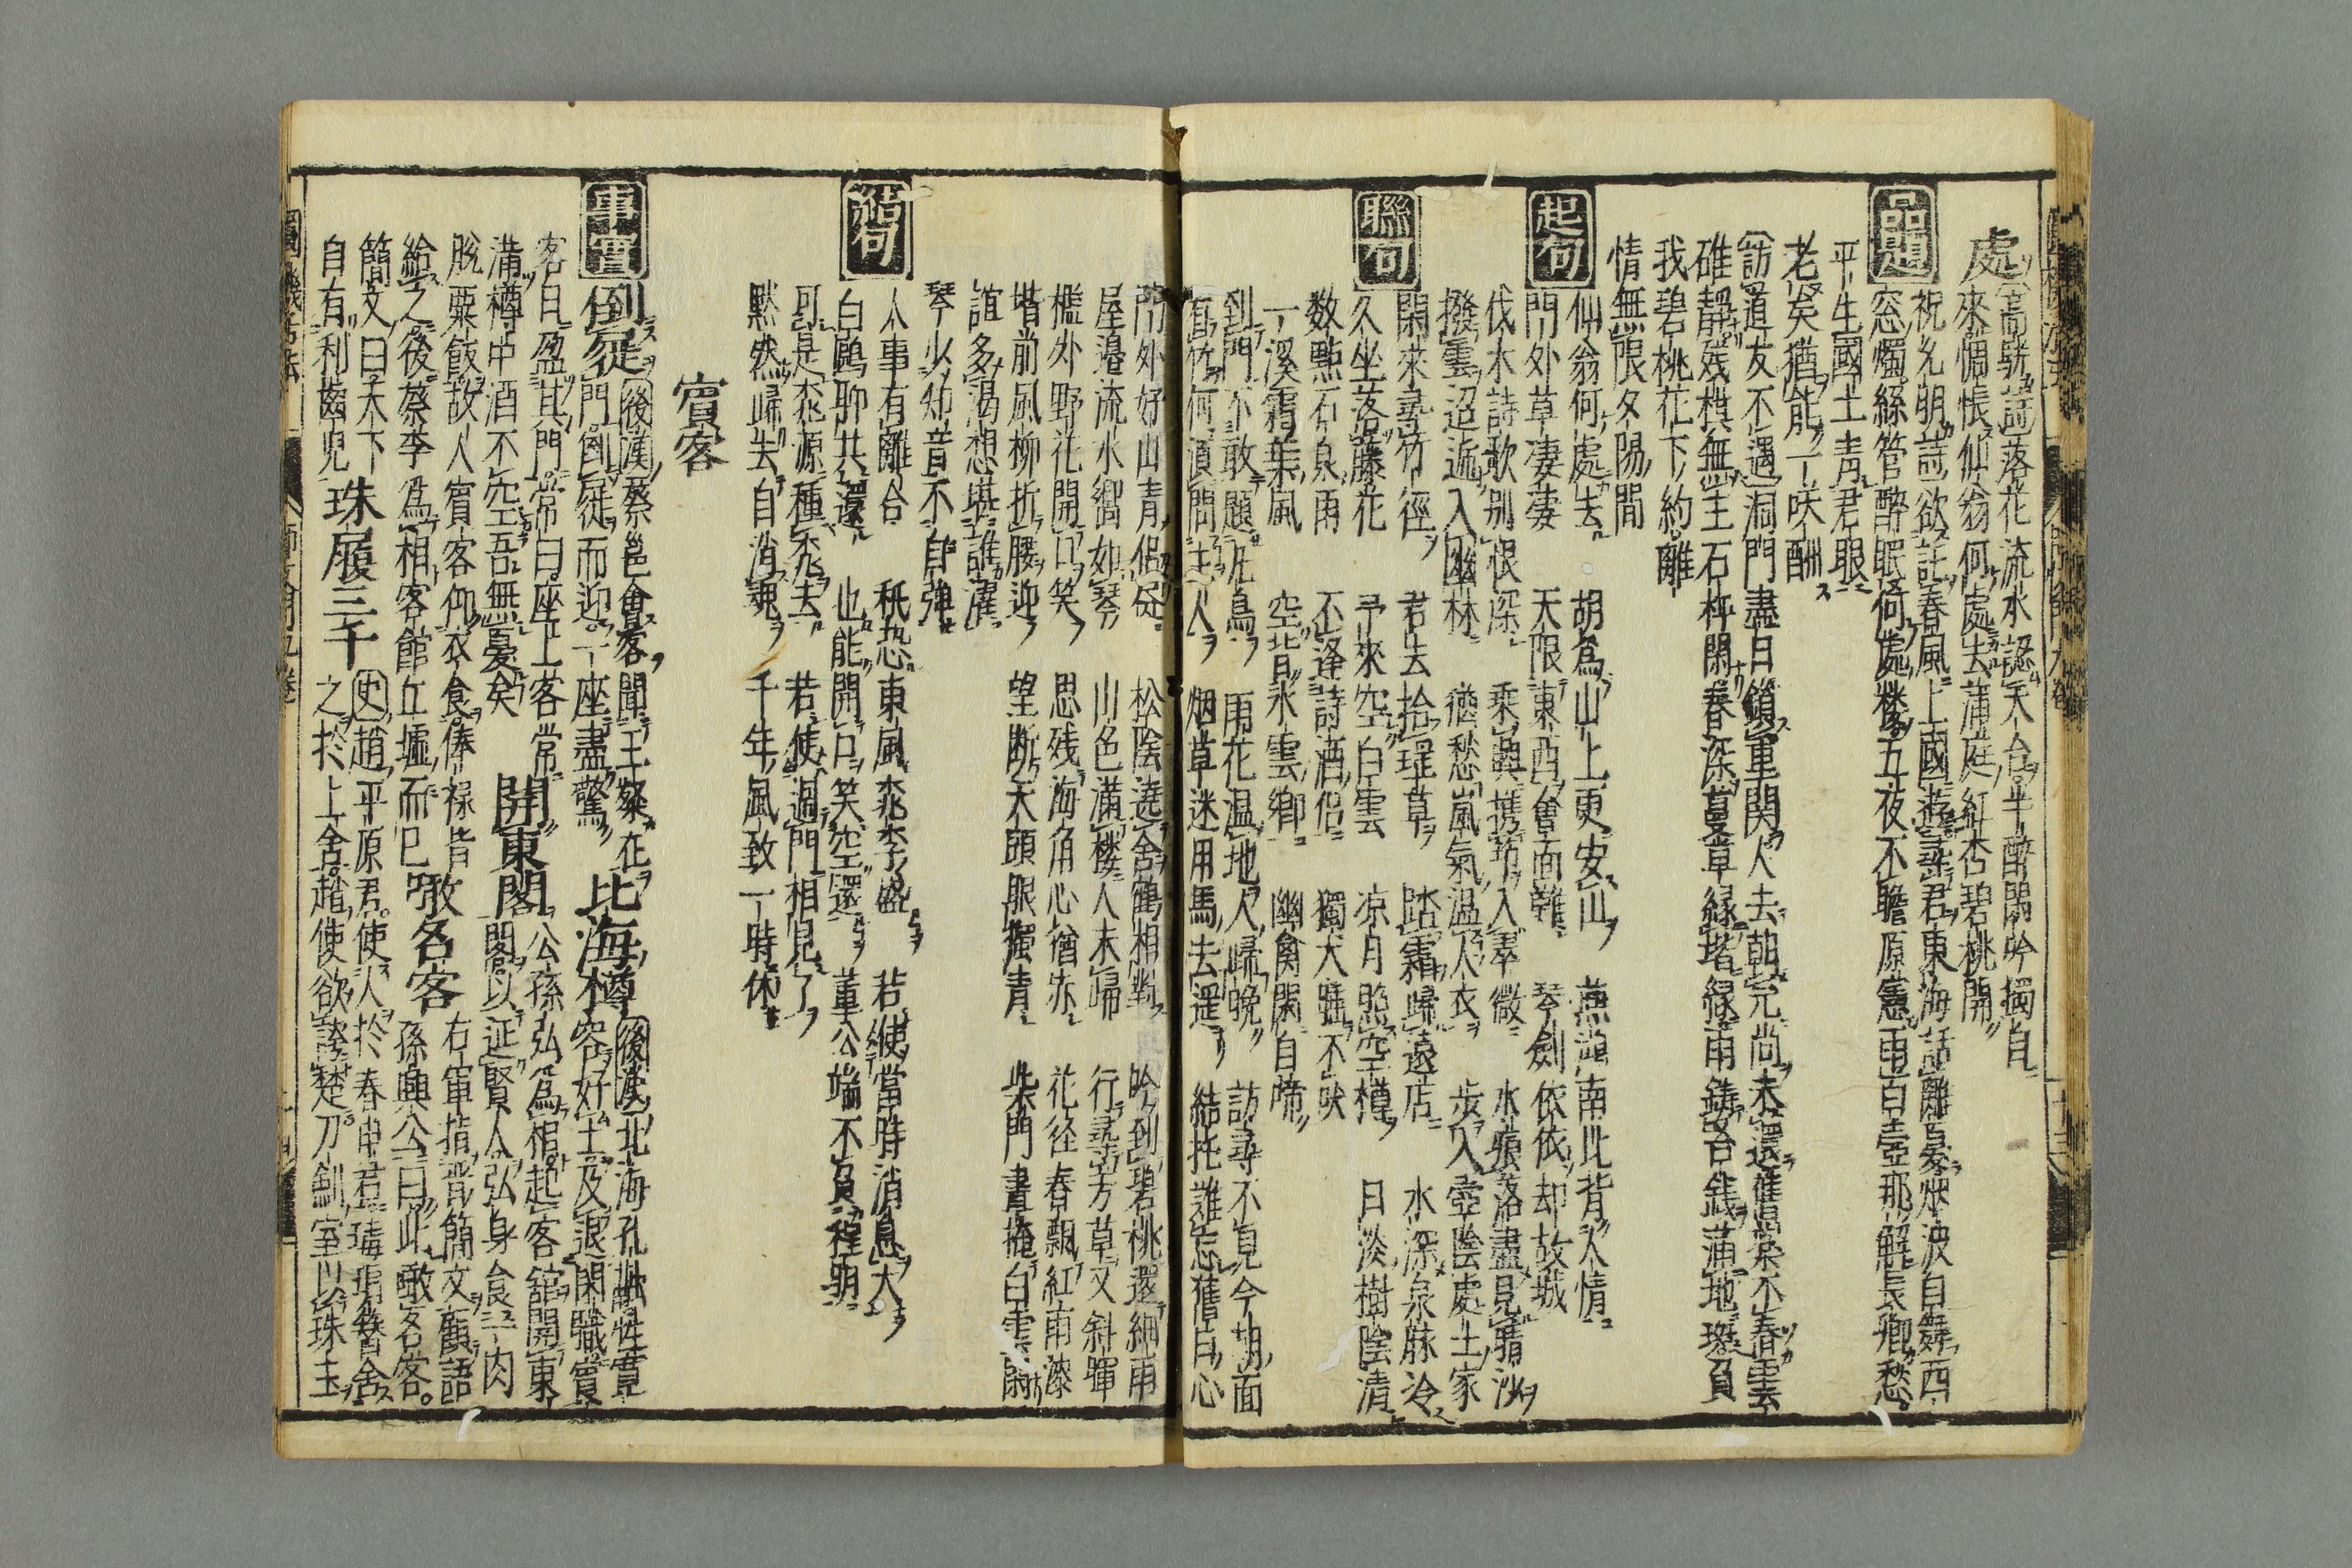 處
高駢詩落花流水認天台半醉閑吟獨自
來惆悵仙翁何處去滿庭紅杏碧桃開
品題
祝允明詩欲託春風上國遊
東海話離憂烟波白
西
窓燭絲管醉眠何處樓五夜不
原憲雨百壺那解長卿愁
平生國士青君眼
老矣猶能一咲酬
訪道友不遇洞門盡日鎖重関人去朝完尚未還
棠不春雲
碓靜残棋無主石枰閑春深
草緑堦緑雨
苔銭滿地斑負
我碧桃花下約離
情無限夕陽間
起句
仙翁何處去
胡爲山上更安山
南北背人情
門外草凄凄
天限東西會面難
琴劍依依却故城
伐木詩歌别恨深
乘興携筇入翠微
水痕落盡見晴沙
撥雲迢遞入幽林
猶愁嵐氣温人衣
步入壺陰處士家
聯句
閑來尋竹徑
君去拾瑤草
踏霜歸遠店
水深泉脉冷
久坐落藤花
予來空白雲
凉月照空樽
日淡樹陰清
数點石泉雨
不逢詩酒侶
獨犬
不吠
一溪霜葉風
空背水雲鄉
幽禽閑自啼
到門不敢題凡鳥
雨花温地人歸晩
訪尋不見今
面
看竹何須問主人
烟草迷用馬去遥
結托誰忘舊日心
門外好山青侶
松陰遶舍鶴相對
吟到碧桃還細雨
屋邉流水響如琴
山色滿樓人未歸
行尋芳草又斜暉
檻外野花開口笑
思残海角心猶赤
花径春飄紅雨
堦前風柳折腰迎
望断天頭眼獨青
柴門晝掩白雲
誼多渇想堪誰濯
琴少知音不自弾
結句
人事有離合
秖恐東風桃李盛
若使當時消息大
白鷗聊共還
也能開口笑空還
董公端不負程明
可是桃源種桃去
若使過門相見了
默然歸去自消魂
千年風致一時休
賓客
事實
倒屣
後漢蔡邕會客聞王粲在
門倒屣而迎一座盡驚
北海樽
後漢北海孔融性寛
容好士及退閑職賓
客日盈其門常曰座上客常
滿樽中酒不空吾無憂矣
開東閣
公孫弘爲相起客舘開東
閣以延賢人弘身食一肉
脫粟飯故人賓客仰衣食俸禄皆
給之後蔡李爲相客館丘墟而已
敢名客
右軍指晋簡文顧語
孫興公曰此敢名客
簡文曰天下
自有利齒兒
珠履三千
史趙平原君使人於春申君
瑇瑁簮舍
之於上舍趙使欲誇楚刀劍室以珠玉